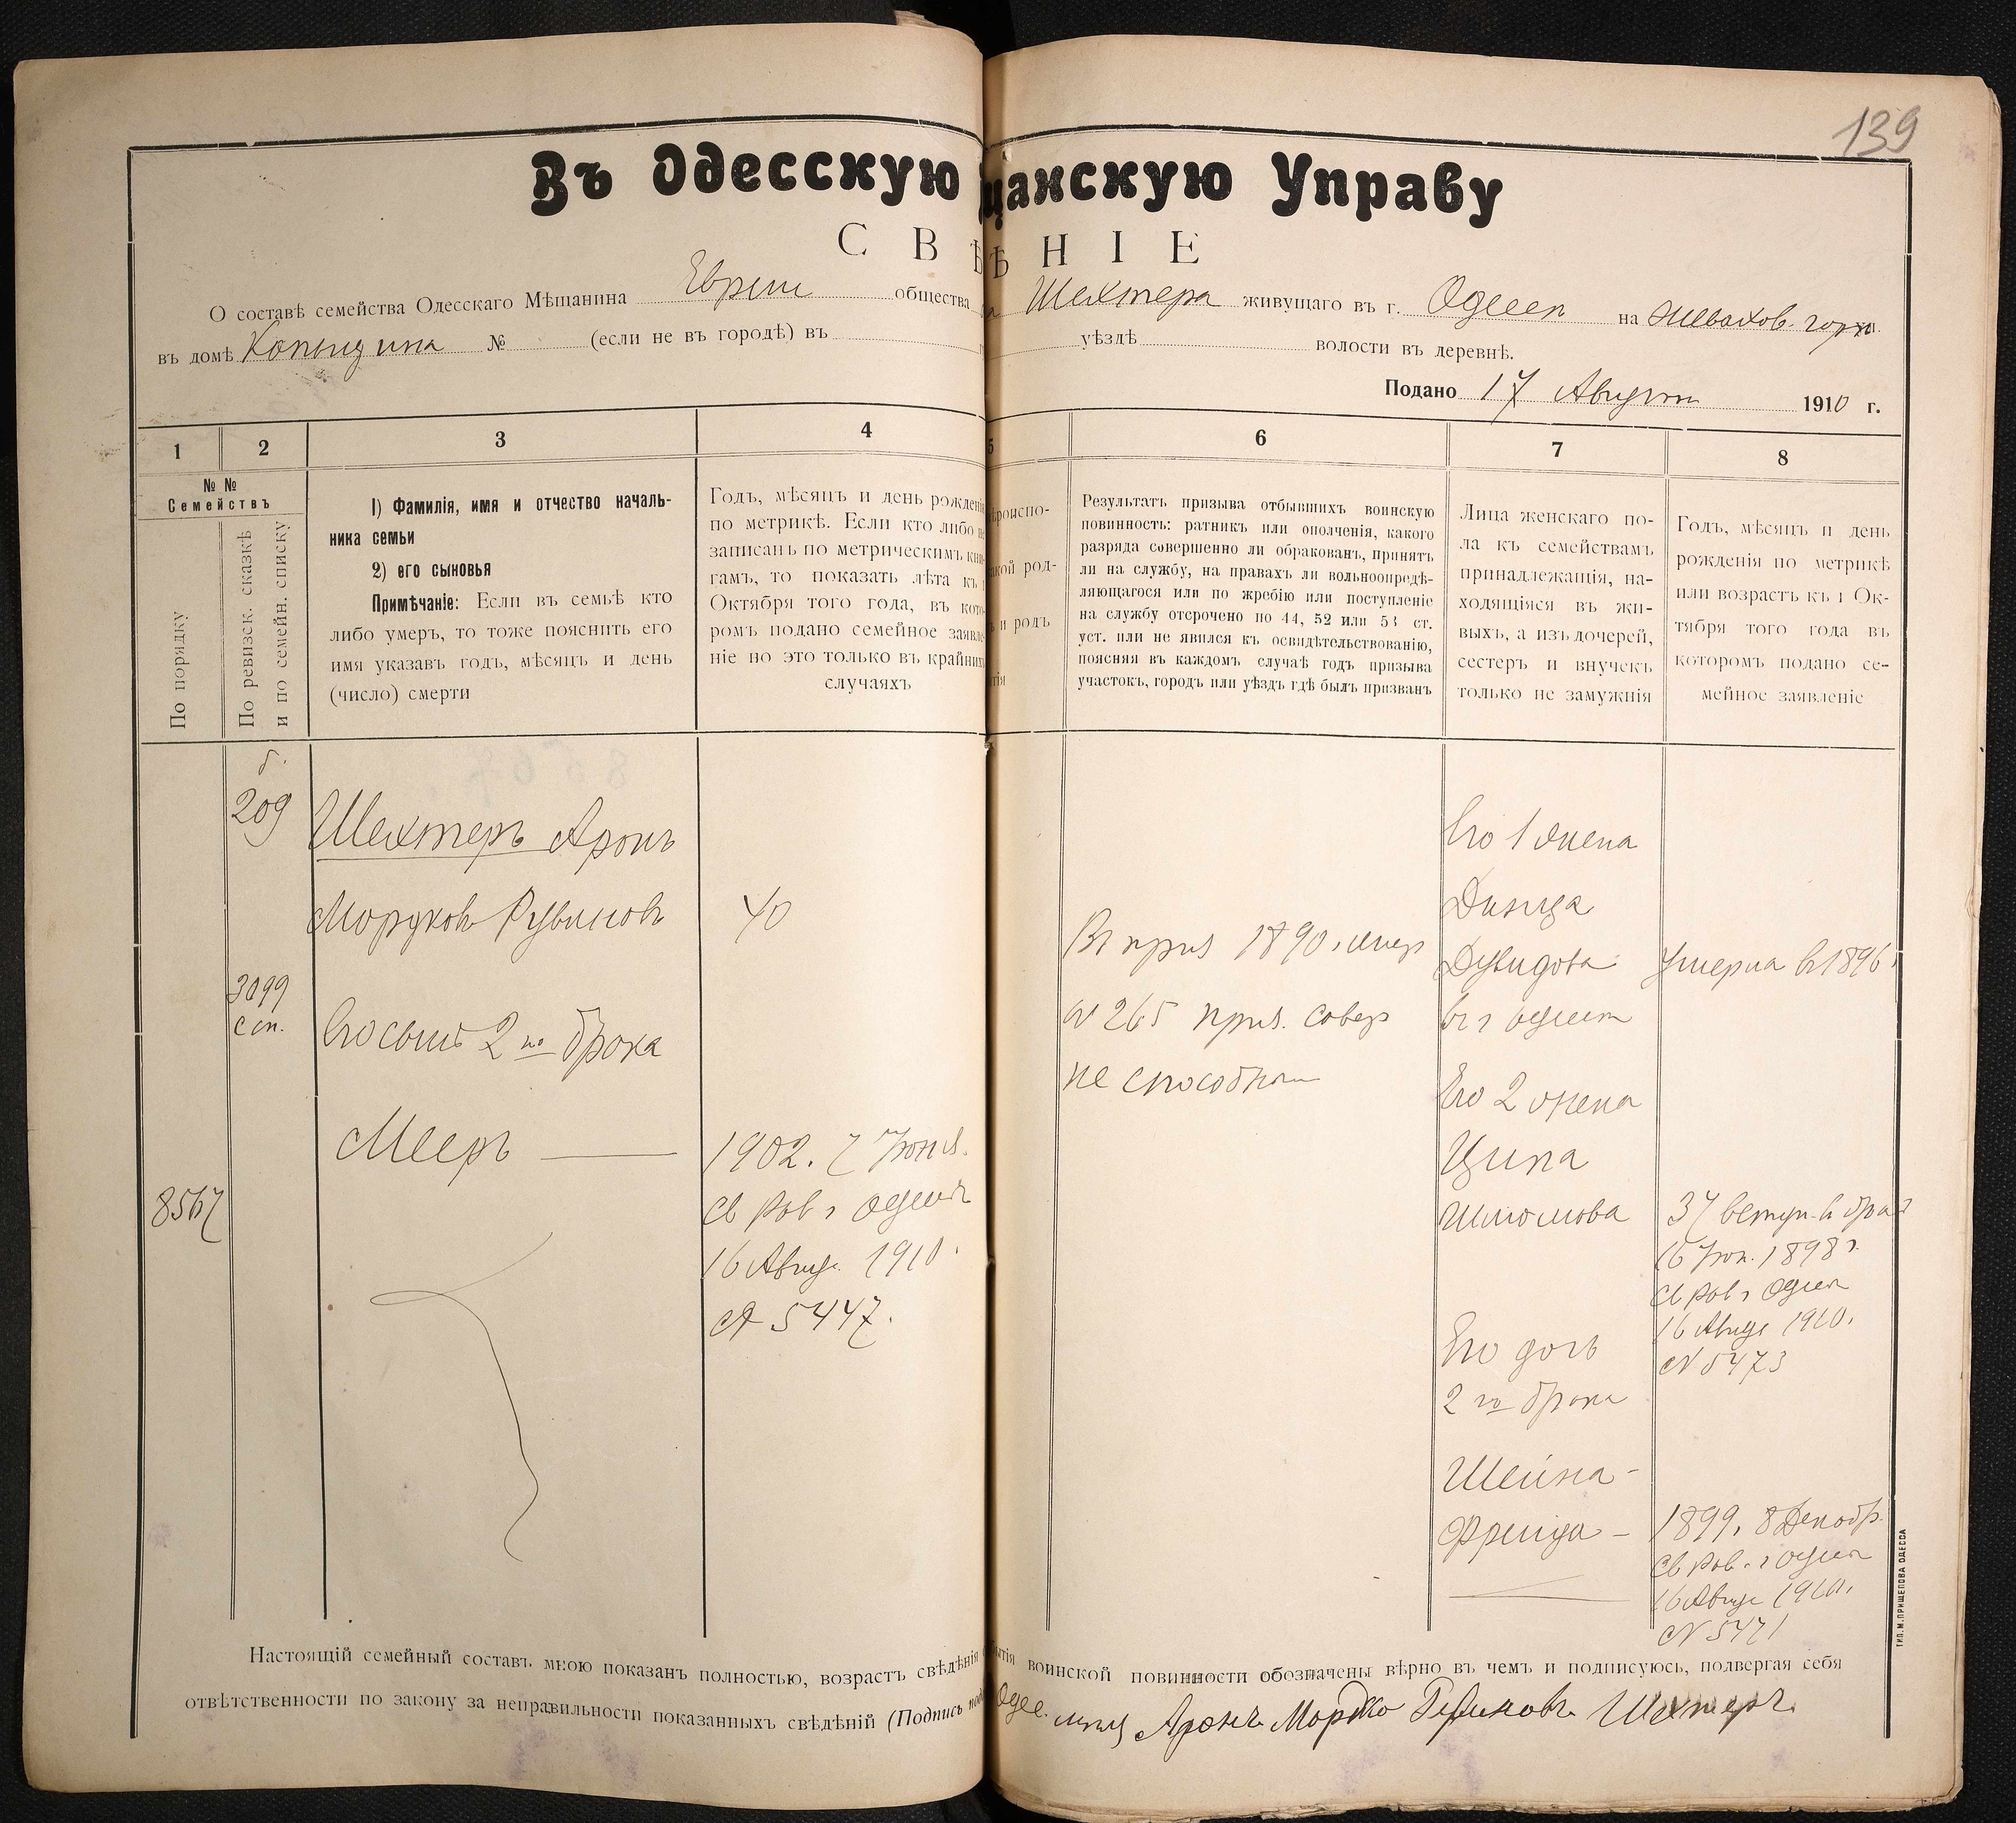 139
Въ Одесскую щанскую Управу
СВѢ ѢНІЕ
О составѣ семейства Одесскаго Мѣщанина Евреи общества Шехтера живущаго въ г. Одессѣ на Шевахов. горѣ
въ домѣ № (если не въ городѣ) въ уѣздѣ волости въ деревнѣ.
Подано 17 Августа 1910 г.
1 2 3 4 5 6 7 8
№ №
Семействъ
По порядку
По ревизск. сказкѣ
и по семейн. списку
1) Фамилія, имя и отчество началь-
ника семьи
2) его сыновья
Примѣчаніе: Если въ семьѣ кто
либо умеръ, то тоже пояснить его
имя указавъ годъ, мѣсяцъ и день
(число) смерти
Годъ, мѣсяцъ и день рожденія
по метрикѣ. Если кто либо не
записанъ по метрическимъ кни-
гамъ, то показать лѣта къ 1
Октября того года, въ кото-
ромъ подано семейное заявле-
ніе но это только въ крайнихъ
случаяхъ
ѣроиспо-
акой род-
и родъ
тія
Результатъ призыва отбывшихъ воинскую
повинность: ратникъ или ополченія, какого
разряда совершенно ли обракованъ, принятъ
ли на службу, на правахъ ли вольноопредѣ-
ляющагося или по жребію или поступленіе
на службу отсрочено по 44, 52 или 53 ст.
уст. или не явился къ освидѣтельствованію,
поясняя въ каждомъ случаѣ годъ призыва
участокъ, городъ или уѣздъ гдѣ былъ призванъ
Лица женскаго по-
ла къ семействамъ
принадлежащія, на-
ходящіяся въ жи-
выхъ, а изъ дочерей,
сестеръ и внучекъ
только не замужнія
Годъ, мѣсяцъ и день
рожденія по метрикѣ
или возрастъ къ 1 Ок-
тября того года въ
которомъ подано се-
мейное заявленіе
б.
209
3099
сп.
8567
Шехтеръ Аронъ
Мордковъ Рувиновъ
Его сынъ 2 го брака
Мееръ —
40
1902. 7 Іюня.
Св Рав г Одессы
16 Авгус. 1910.
№ 5447.
Въ приз 1890 г. жер
№ 265 призн. совер
не способным
Его 1 жена
Двойра
Дувидова
въ г Одессѣ
Его 2 жена
Ципа
Шломова
Его дочь
2 го брака
Шейна-
Фрейда —
Умерла в 1896 г
37 вступ. в брак
16 Іюн. 1898 г.
Св Рав г Одессы
16 Авгус 1910.
№ 5473
1899. 8 Декабр.
Св Рав. г Одессы
16 Авгус 1910.
№ 5471
Настоящій семейный составъ мною показанъ полностью, возрастъ свѣдѣнія бытія воинской повинности обозначены вѣрно въ чемъ и подписуюсь, подвергая себя
отвѣтственности по закону за неправильности показанныхъ свѣдѣній (Подпись Одес. мѣщ Аронъ Мордко Рувиновъ Шехтеръ.
ТИП. М. ПРИЩЕПОВА ОДЕССА